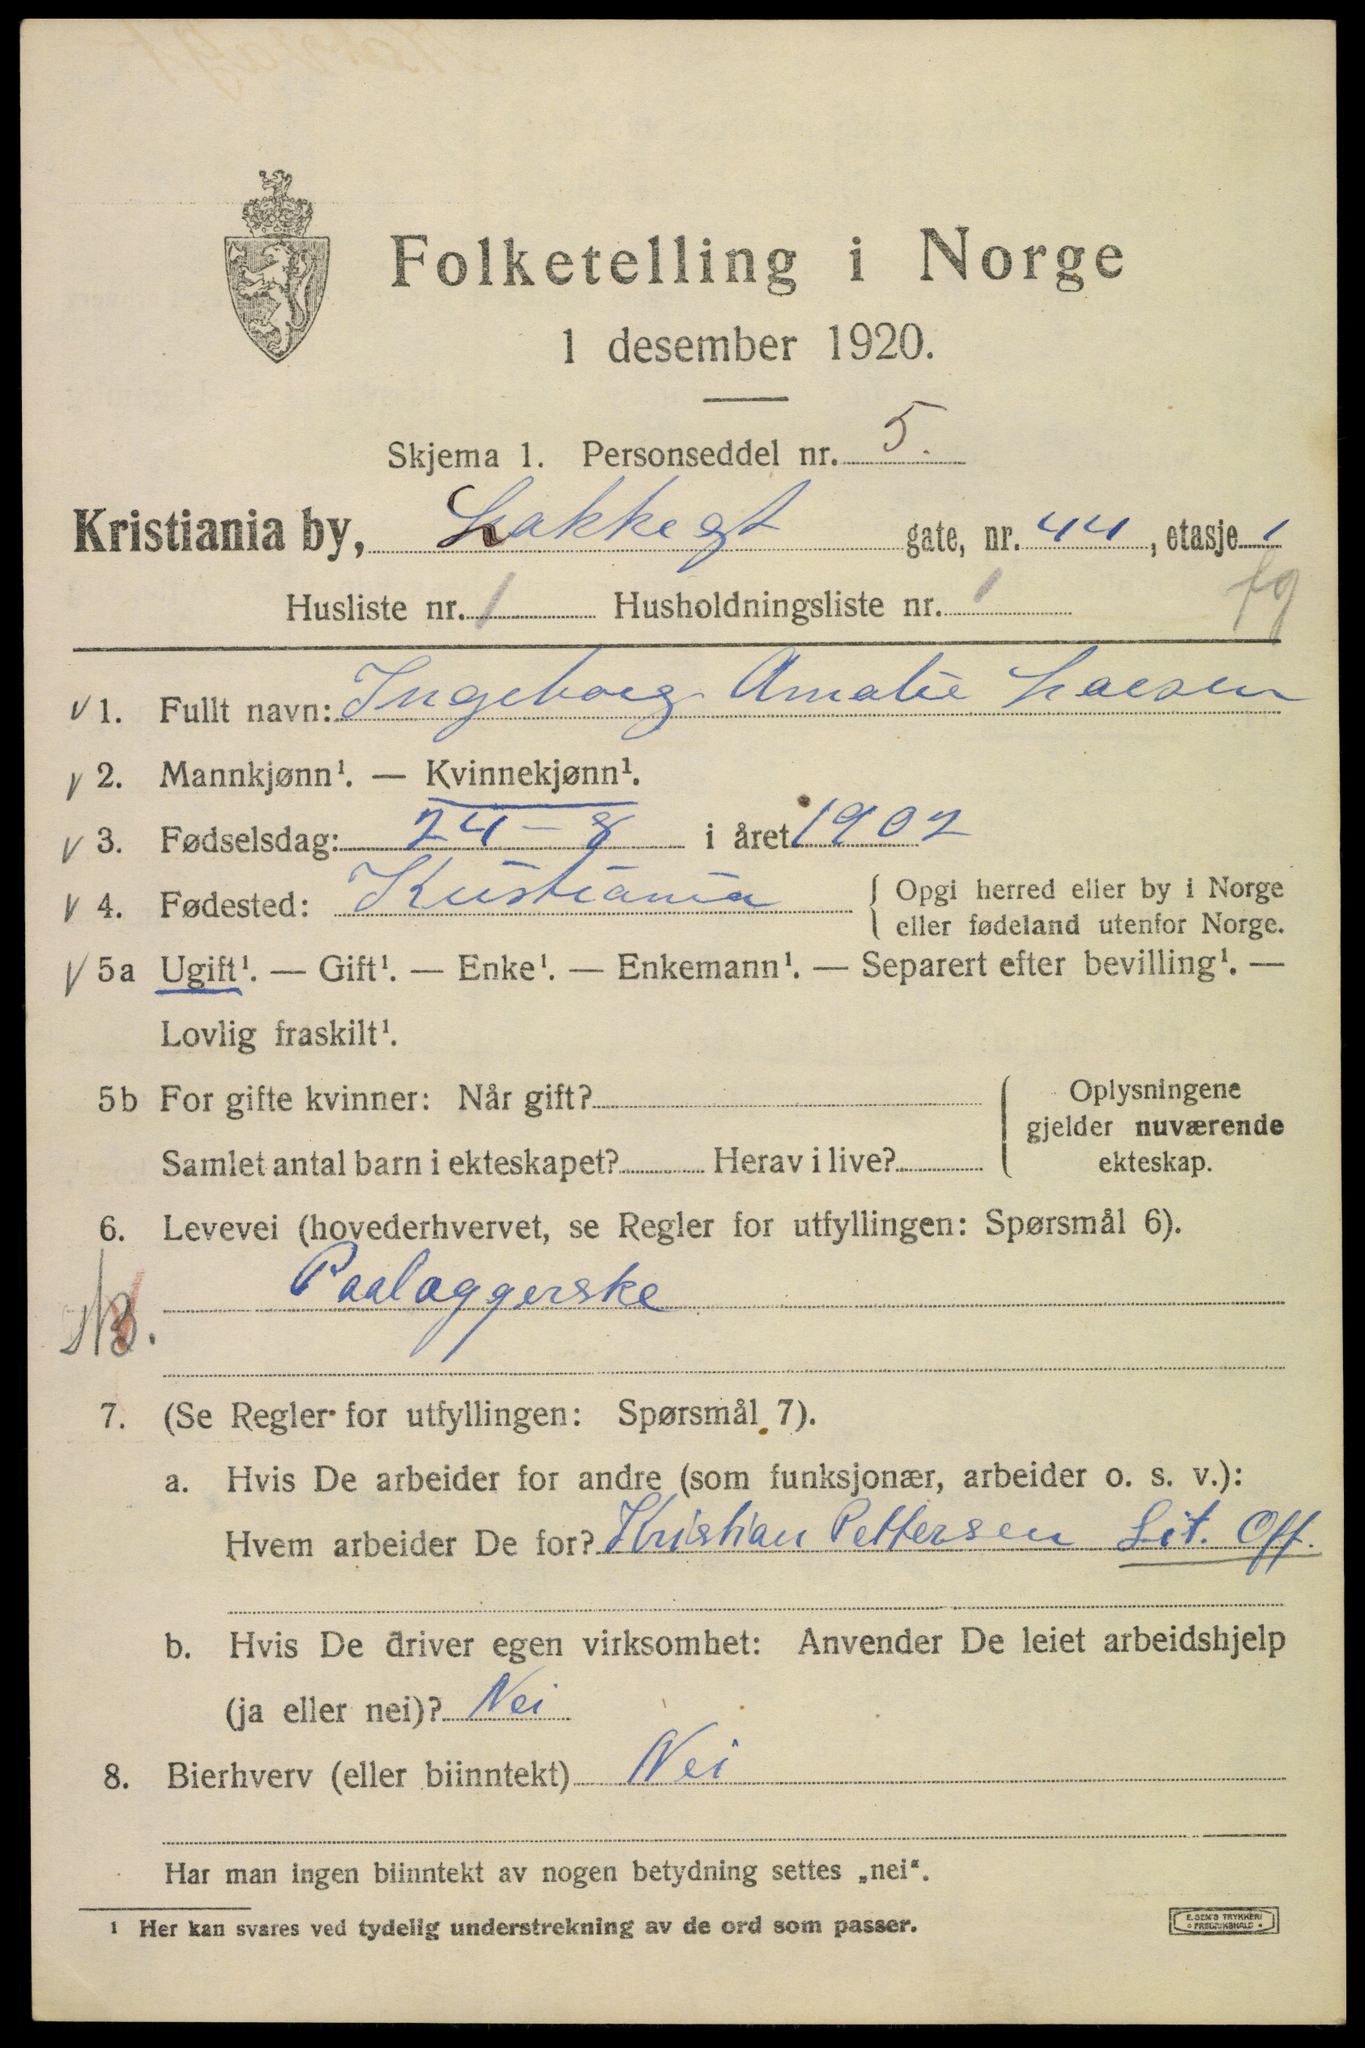 Folketelling i Norge
1 desember 1920.
Skjema 1. Personseddel nr. 5.
Kristiania by, Lakkegt gate, nr. 44, etasje 1
Husliste nr. 1 Husholdningsliste nr. 1
fg
1. Fullt navn: Ingeborg Amalie Larsen
2. Mannkjønn¹. — Kvinnekjønn¹.
3. Fødselsdag: 24 – 8 i året 1902
4. Fødested: Kristiania { Opgi herred eller by i Norge
eller fødeland utenfor Norge.
5a Ugift¹. — Gift¹. — Enke¹. — Enkemann¹. — Separert efter bevilling¹. —
Lovlig fraskilt¹.
5b For gifte kvinner: Når gift? { Oplysningene
gjelder nuværende
Samlet antal barn i ekteskapet? Herav i live? ekteskap.
6. Levevei (hovederhvervet, se Regler for utfyllingen: Spørsmål 6).
Paalæggerske
7. (Se Regler for utfyllingen: Spørsmål 7).
a. Hvis De arbeider for andre (som funksjonær, arbeider o. s. v.):
Hvem arbeider De for? Kristian Pettersen Lit. Off.
b. Hvis De driver egen virksomhet: Anvender De leiet arbeidshjelp
(ja eller nei)? Nei
8. Bierhverv (eller biinntekt) Nei
Har man ingen biinntekt av nogen betydning settes „nei“.
¹ Her kan svares ved tydelig understrekning av de ord som passer.
E. SEM'S TRYKKERI
FREDRIKSHALD